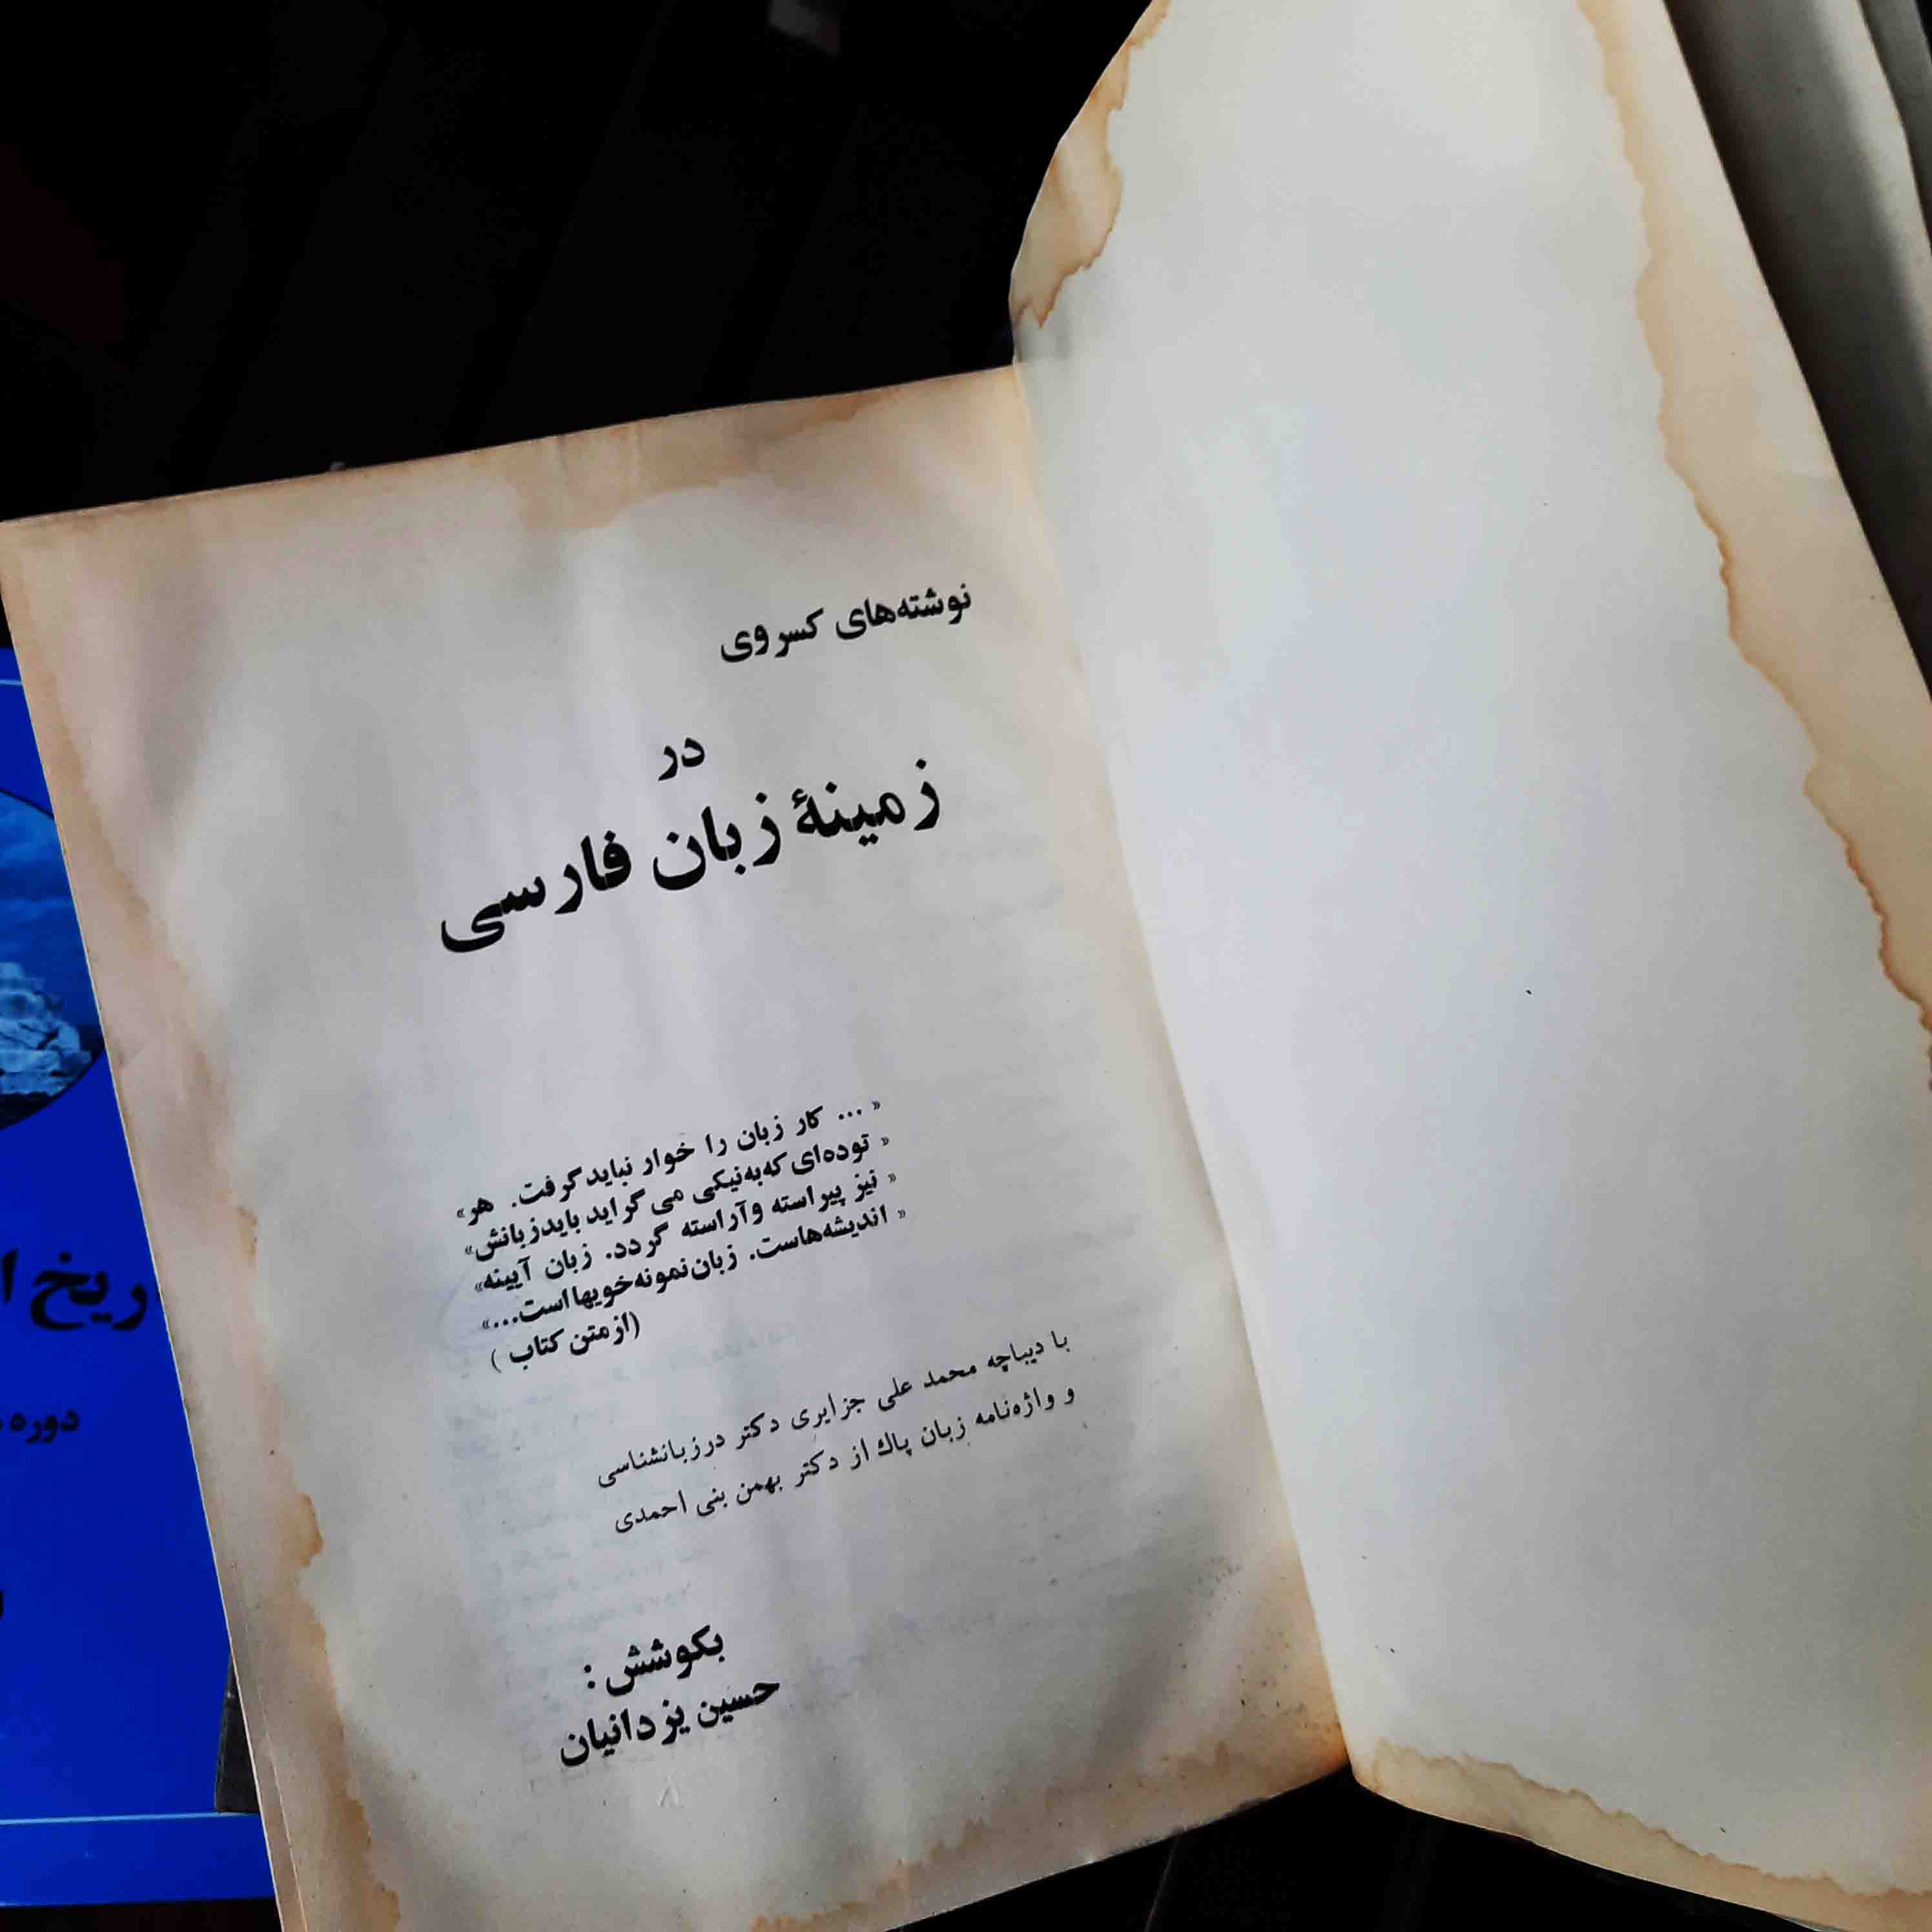 نوشته‌های کسروی
در
زمینهٔ زبان فارسی
« ... کار زبان را خوار نباید گرفت. هر»
« توده‌ای که به‌نیکی می‌گراید باید زبانش»
« نیز پیراسته و آراسته گردد. زبان آیینه»
« اندیشه‌هاست. زبان نمونه خویها است...»
(از متن کتاب )
با دیباچه محمد علی جزایری دکتر در زبانشناسی
و واژه‌نامه زبان پاک از دکتر بهمن بنی احمدی
بکوشش :
حسین یزدانیان
ریخ ا
دوره